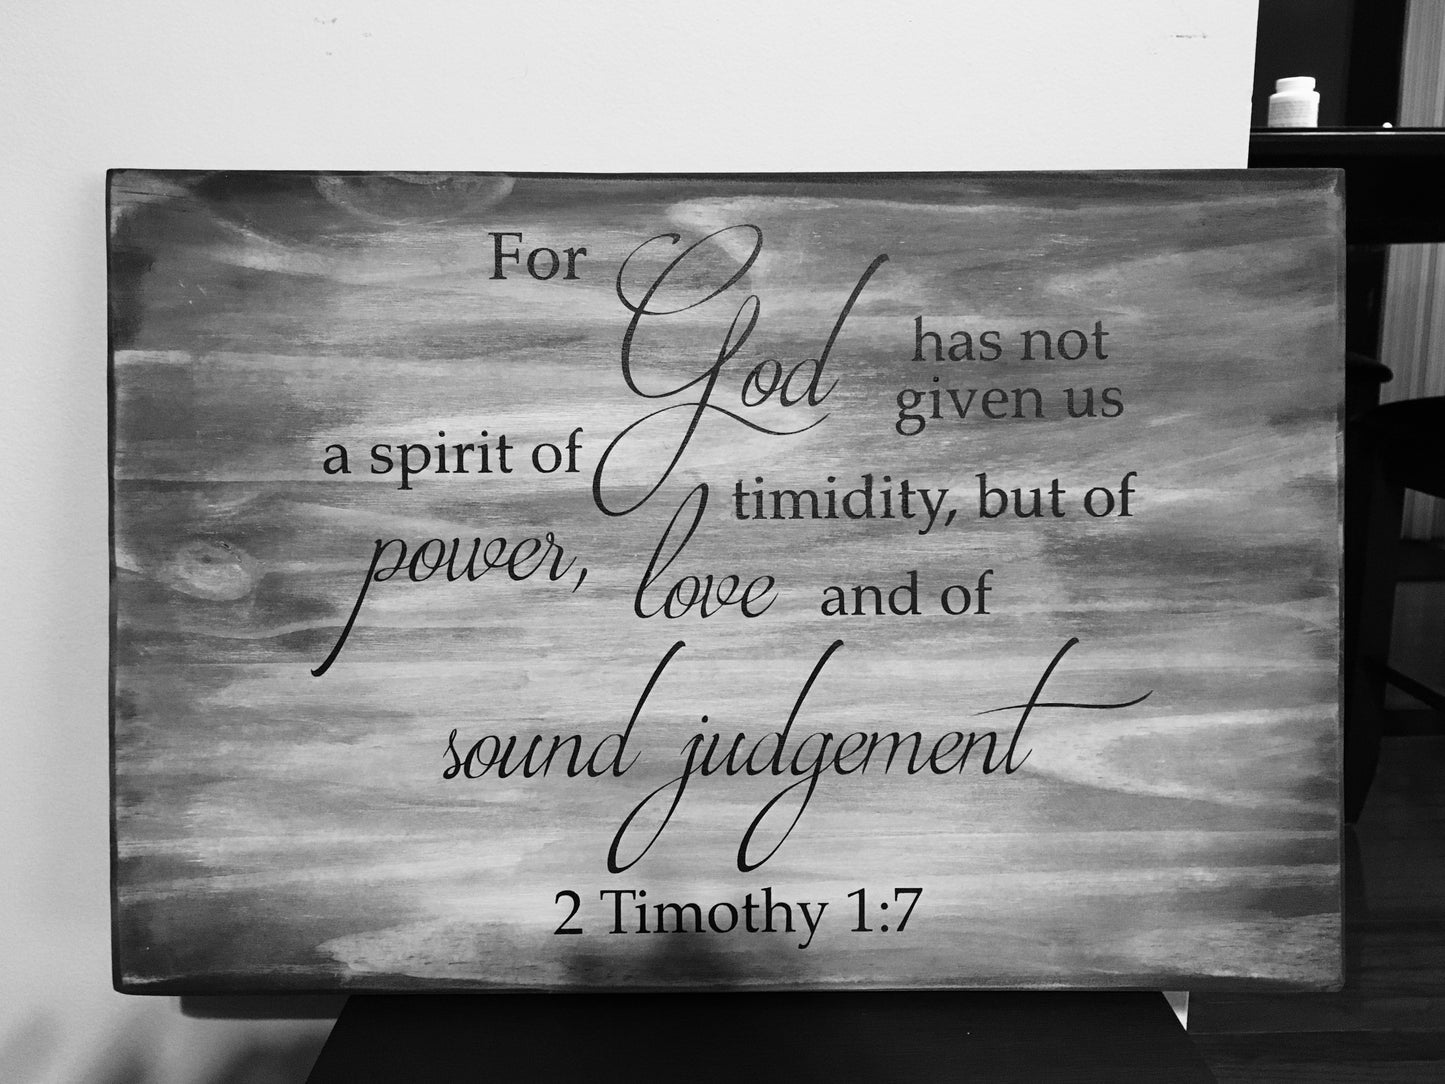 For God has not
given us
a spirit of timidity, but of
power, love and of
sound judgement
2 Timothy 1:7